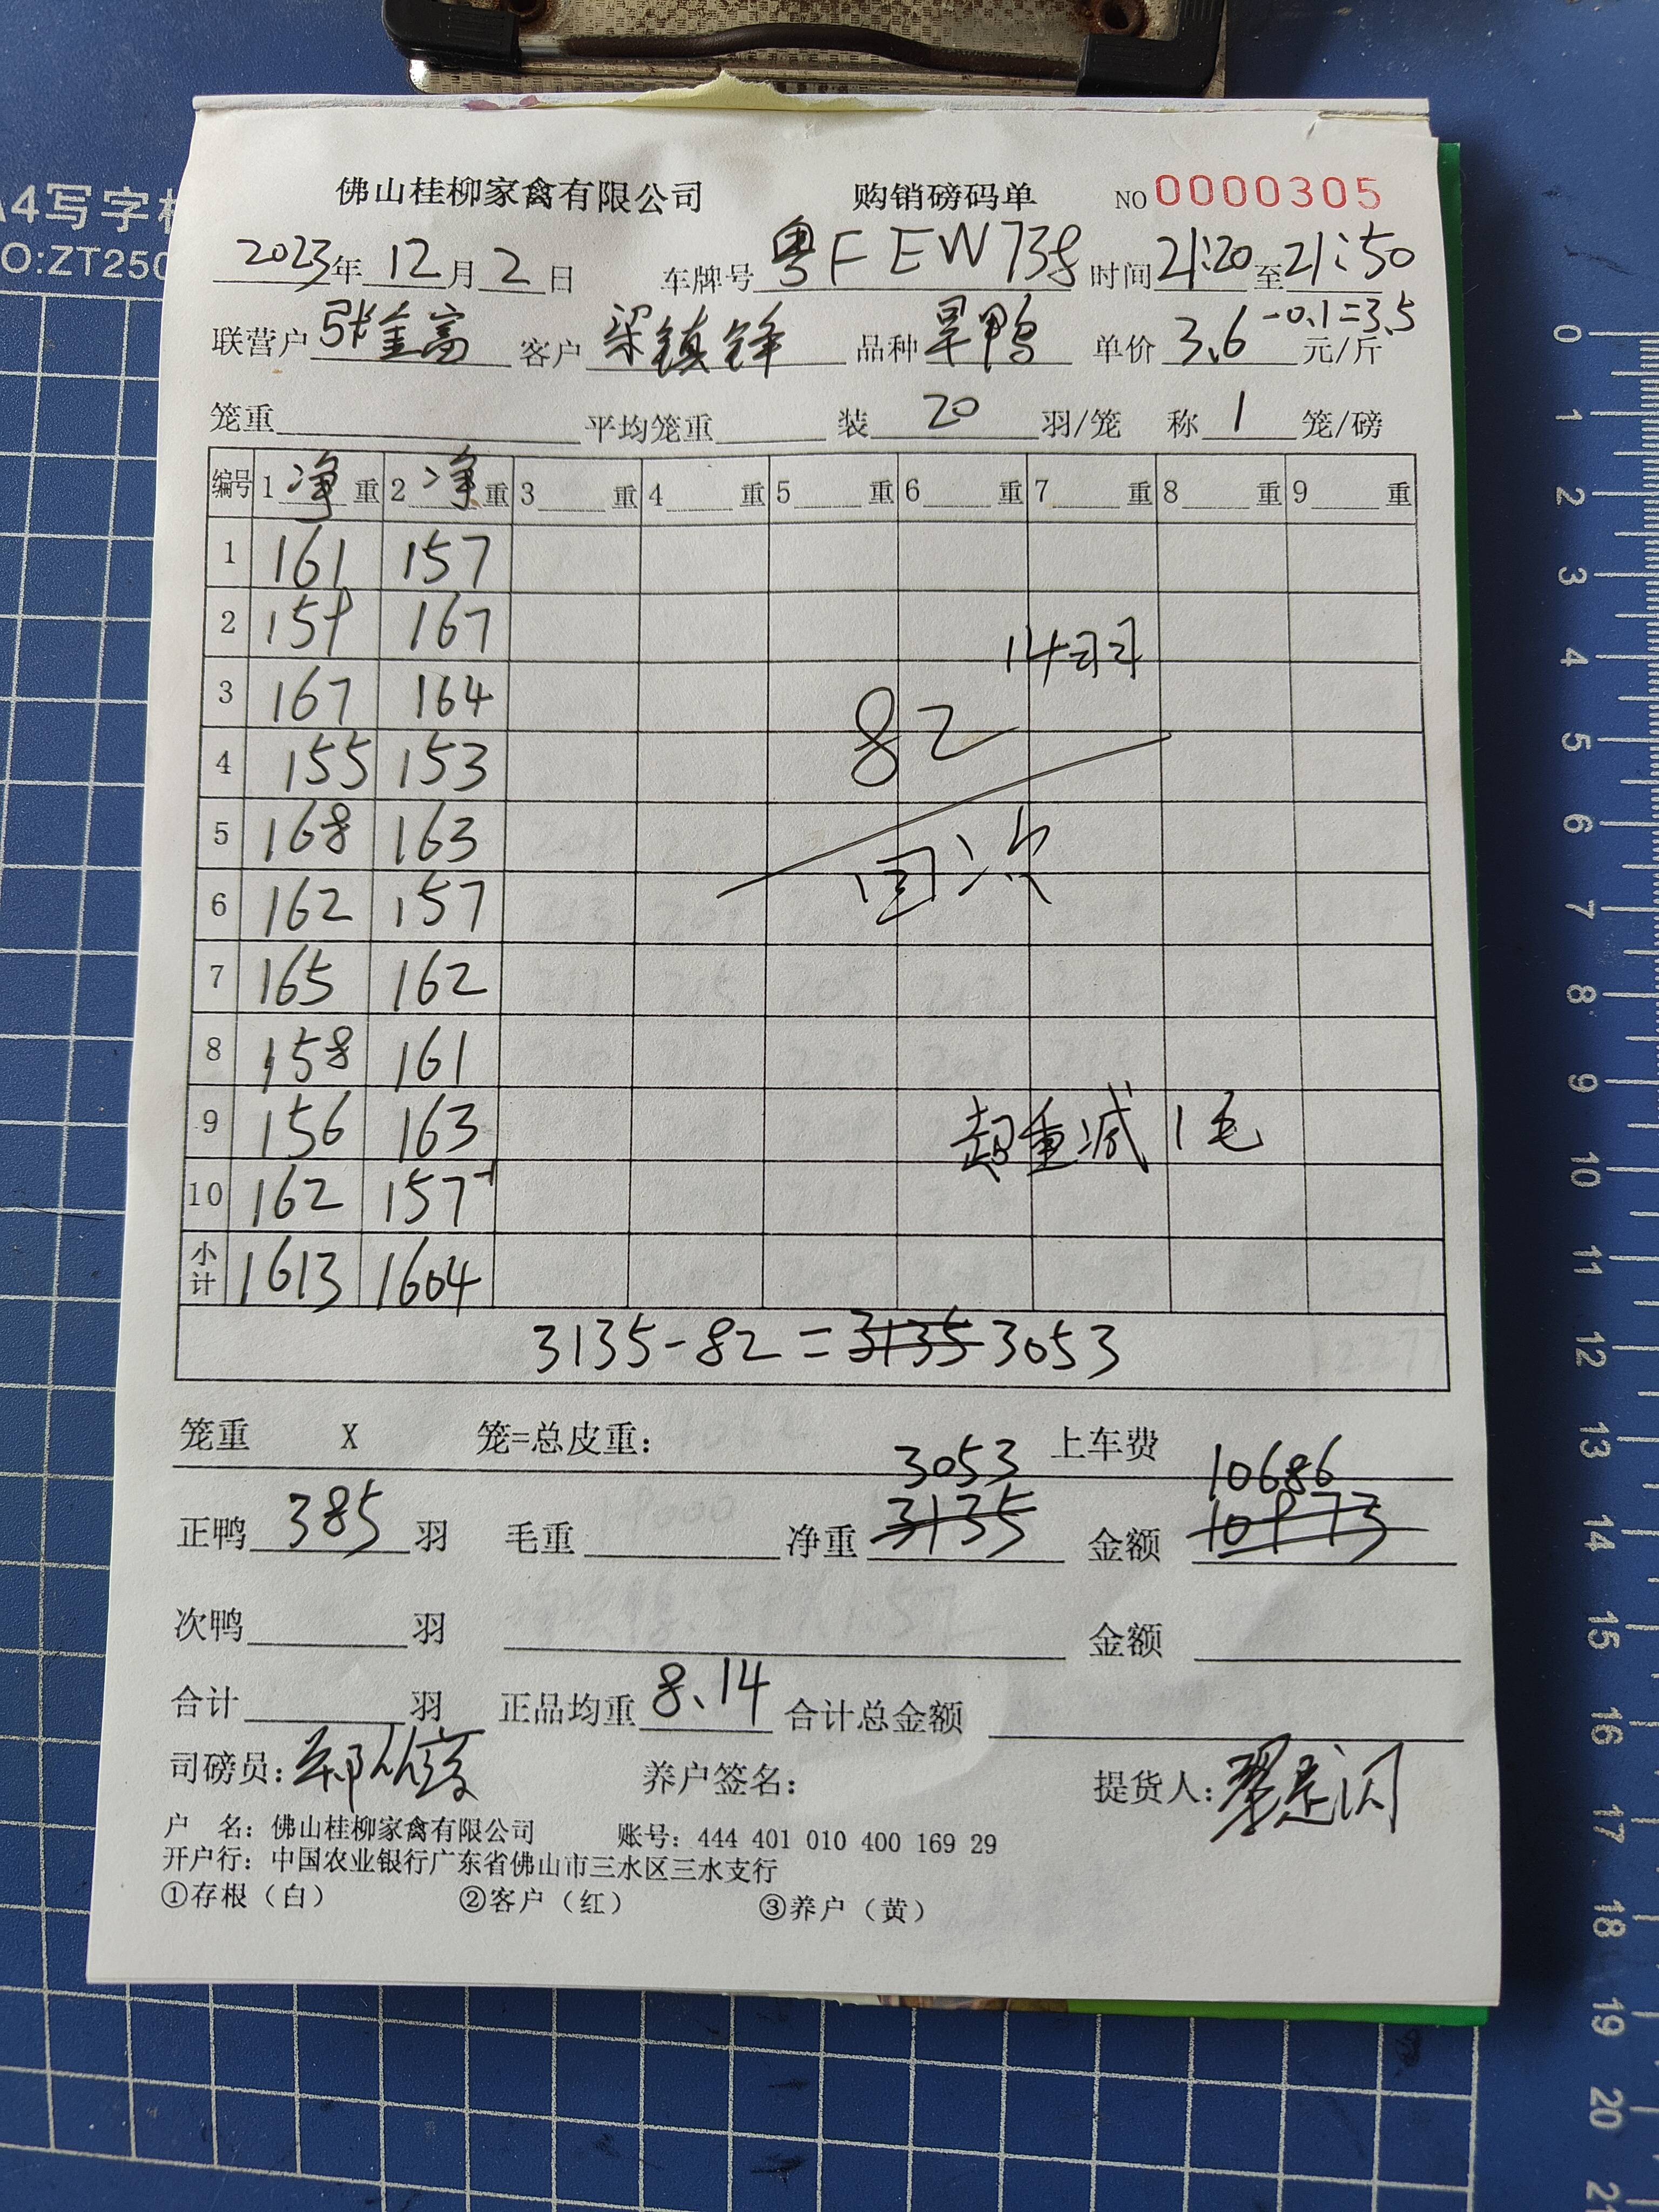 A4写字
NO:ZT250
佛山桂柳家禽有限公司 购销磅码单 NO 0000305
2023年12月2日 车牌号 粤F EW738 时间 21:20 至 21:50
联营户 张金富 客户 梁镇锋 品种 旱鸭 单价 3.6 -0.1=3.5 元/斤
笼重 平均笼重 装 20 羽/笼 称 1 笼/磅
编号 1 净 重 2 净 重 3 重 4 重 5 重 6 重 7 重 8 重 9 重
1 161 157
2 159 167
14羽
3 167 164
82
4 155 153
5 168 163
次
6 162 157
7 165 162
8 158 161
9 156 163 超重减1毛
10 162 157
小计 1613 1604
3135-82=3135 3053
笼重 X 笼=总皮重: 上车费
3053 10686
正鸭 385 羽 毛重 净重 3135 金额 10973
次鸭 羽 金额
合计 羽 正品均重 8.14 合计总金额
司磅员: 养户签名: 提货人:
户 名: 佛山桂柳家禽有限公司 账号: 444 401 010 400 169 29
开户行: 中国农业银行广东省佛山市三水区三水支行
①存根(白) ②客户(红) ③养户(黄)
0
1
2
3
4
5
6
7
8
9
10
11
12
13
14
15
16
17
18
19
20